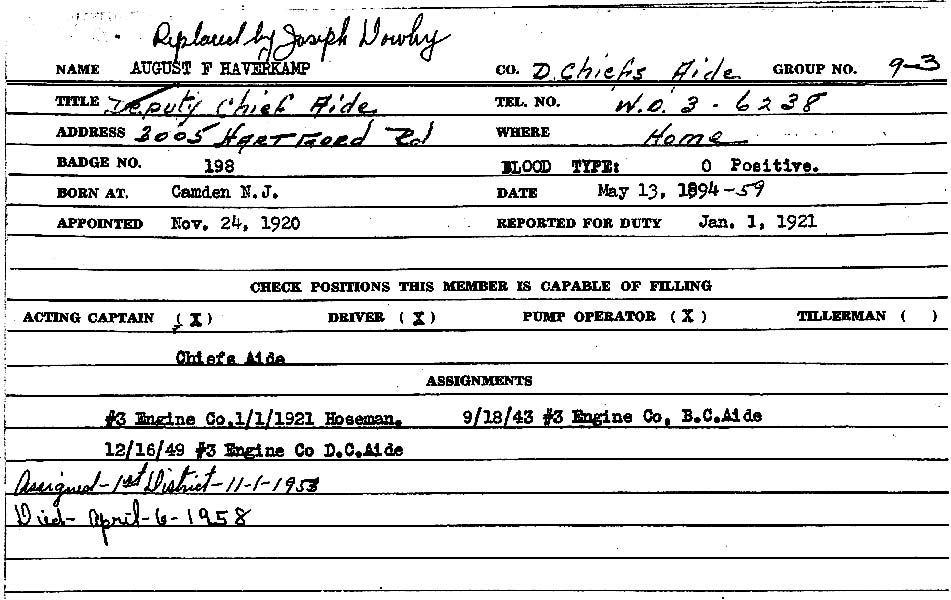 Replaced by Joseph Dowhy
NAME AUGUST F HAVERKAMP CO. D. Chiefs Aide GROUP NO. 9-3
TITLE Deputy Chief Aide TEL. NO. W.O. 3-6238
ADDRESS 3005 Hartford Rd WHERE Home
BADGE NO. 198 BLOOD TYPE: O Positive.
BORN AT. Camden N.J. DATE May 13, 1894-59
APPOINTED Nov. 24, 1920 REPORTED FOR DUTY Jan. 1, 1921
CHECK POSITIONS THIS MEMBER IS CAPABLE OF FILLING
ACTING CAPTAIN (X) DRIVER (X) PUMP OPERATOR (X) TILLERMAN ( )
Chiefs Aide
ASSIGNMENTS
#3 Engine Co.1/1/1921 Hoseman. 9/18/43 #3 Engine Co, B.C.Aide
12/16/49 #3 Engine Co D.C.Aide
Assigned-1st District-11-1-1953
Died- April-6-1958